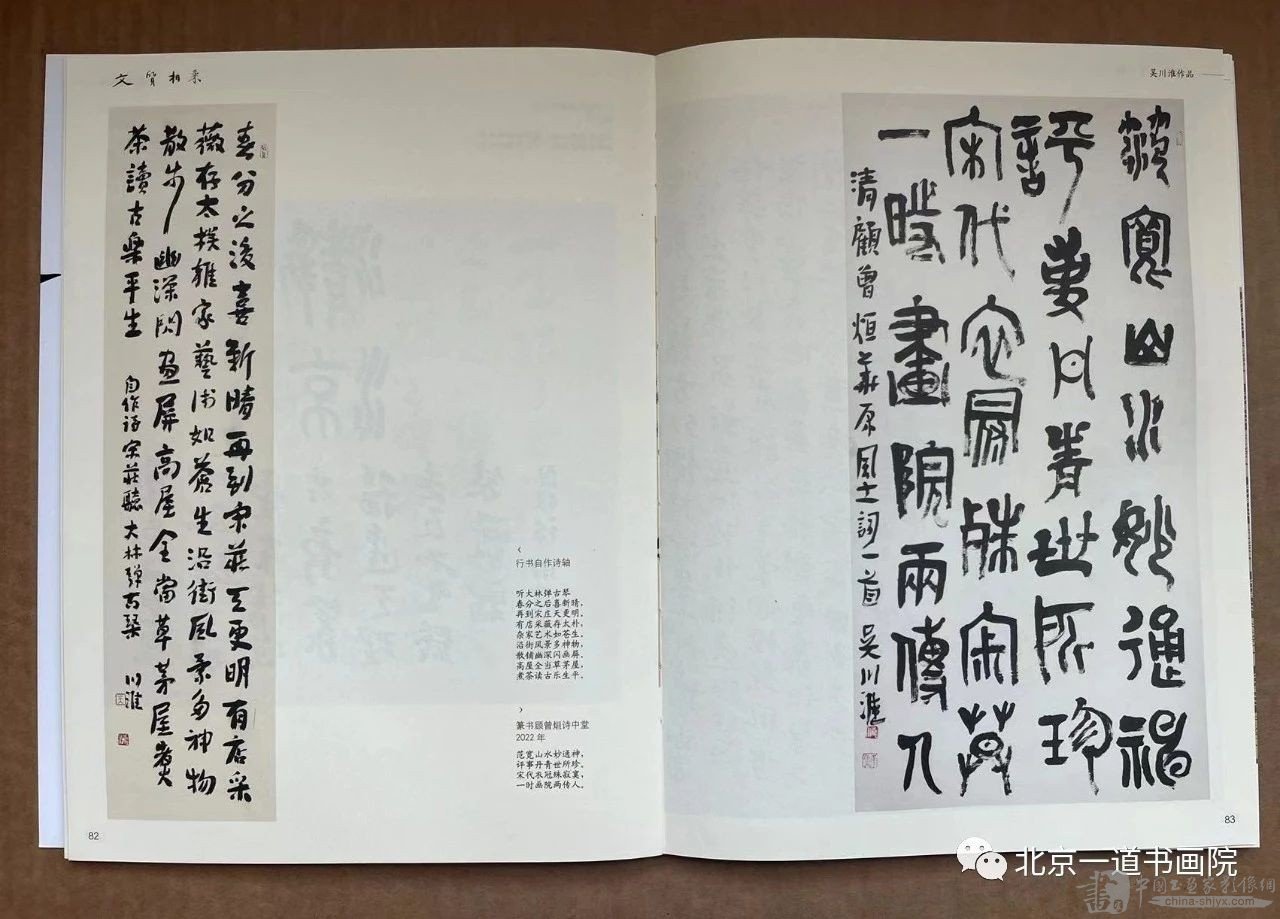 文質相
春分之後喜新晴再到宋莊天更明有店采
薇存太樸雜家藝術如蒼生沿街風景多神物
散步幽深閃畫屏高屋全當草茅屋煮
茶讀古樂平生 自作詩宋莊聽大林彈古琴 川淮
行书自作诗轴
听大林弹古琴
春分之后喜新晴，
再到宋庄天更明。
有店采薇存太朴，
杂家艺术如苍生。
沿街风景多神物，
散铺幽深闪画屏。
高屋全当草茅屋，
煮茶读古乐生平。
篆书顾曾烜诗中堂
2022 年
范宽山水妙通神，
评事丹青世所珍，
宋代衣冠殊寂寞，
一时画院两传人。
82
吴川淮作品
範寬山水妙通神
評事丹青世所珍
宋代衣冠殊寂寞
一時畫院兩傳人
清顧曾烜華原風土詞一首 吳川淮
83
北京一道书画院
中国书画家影像网
china-shjyx.com